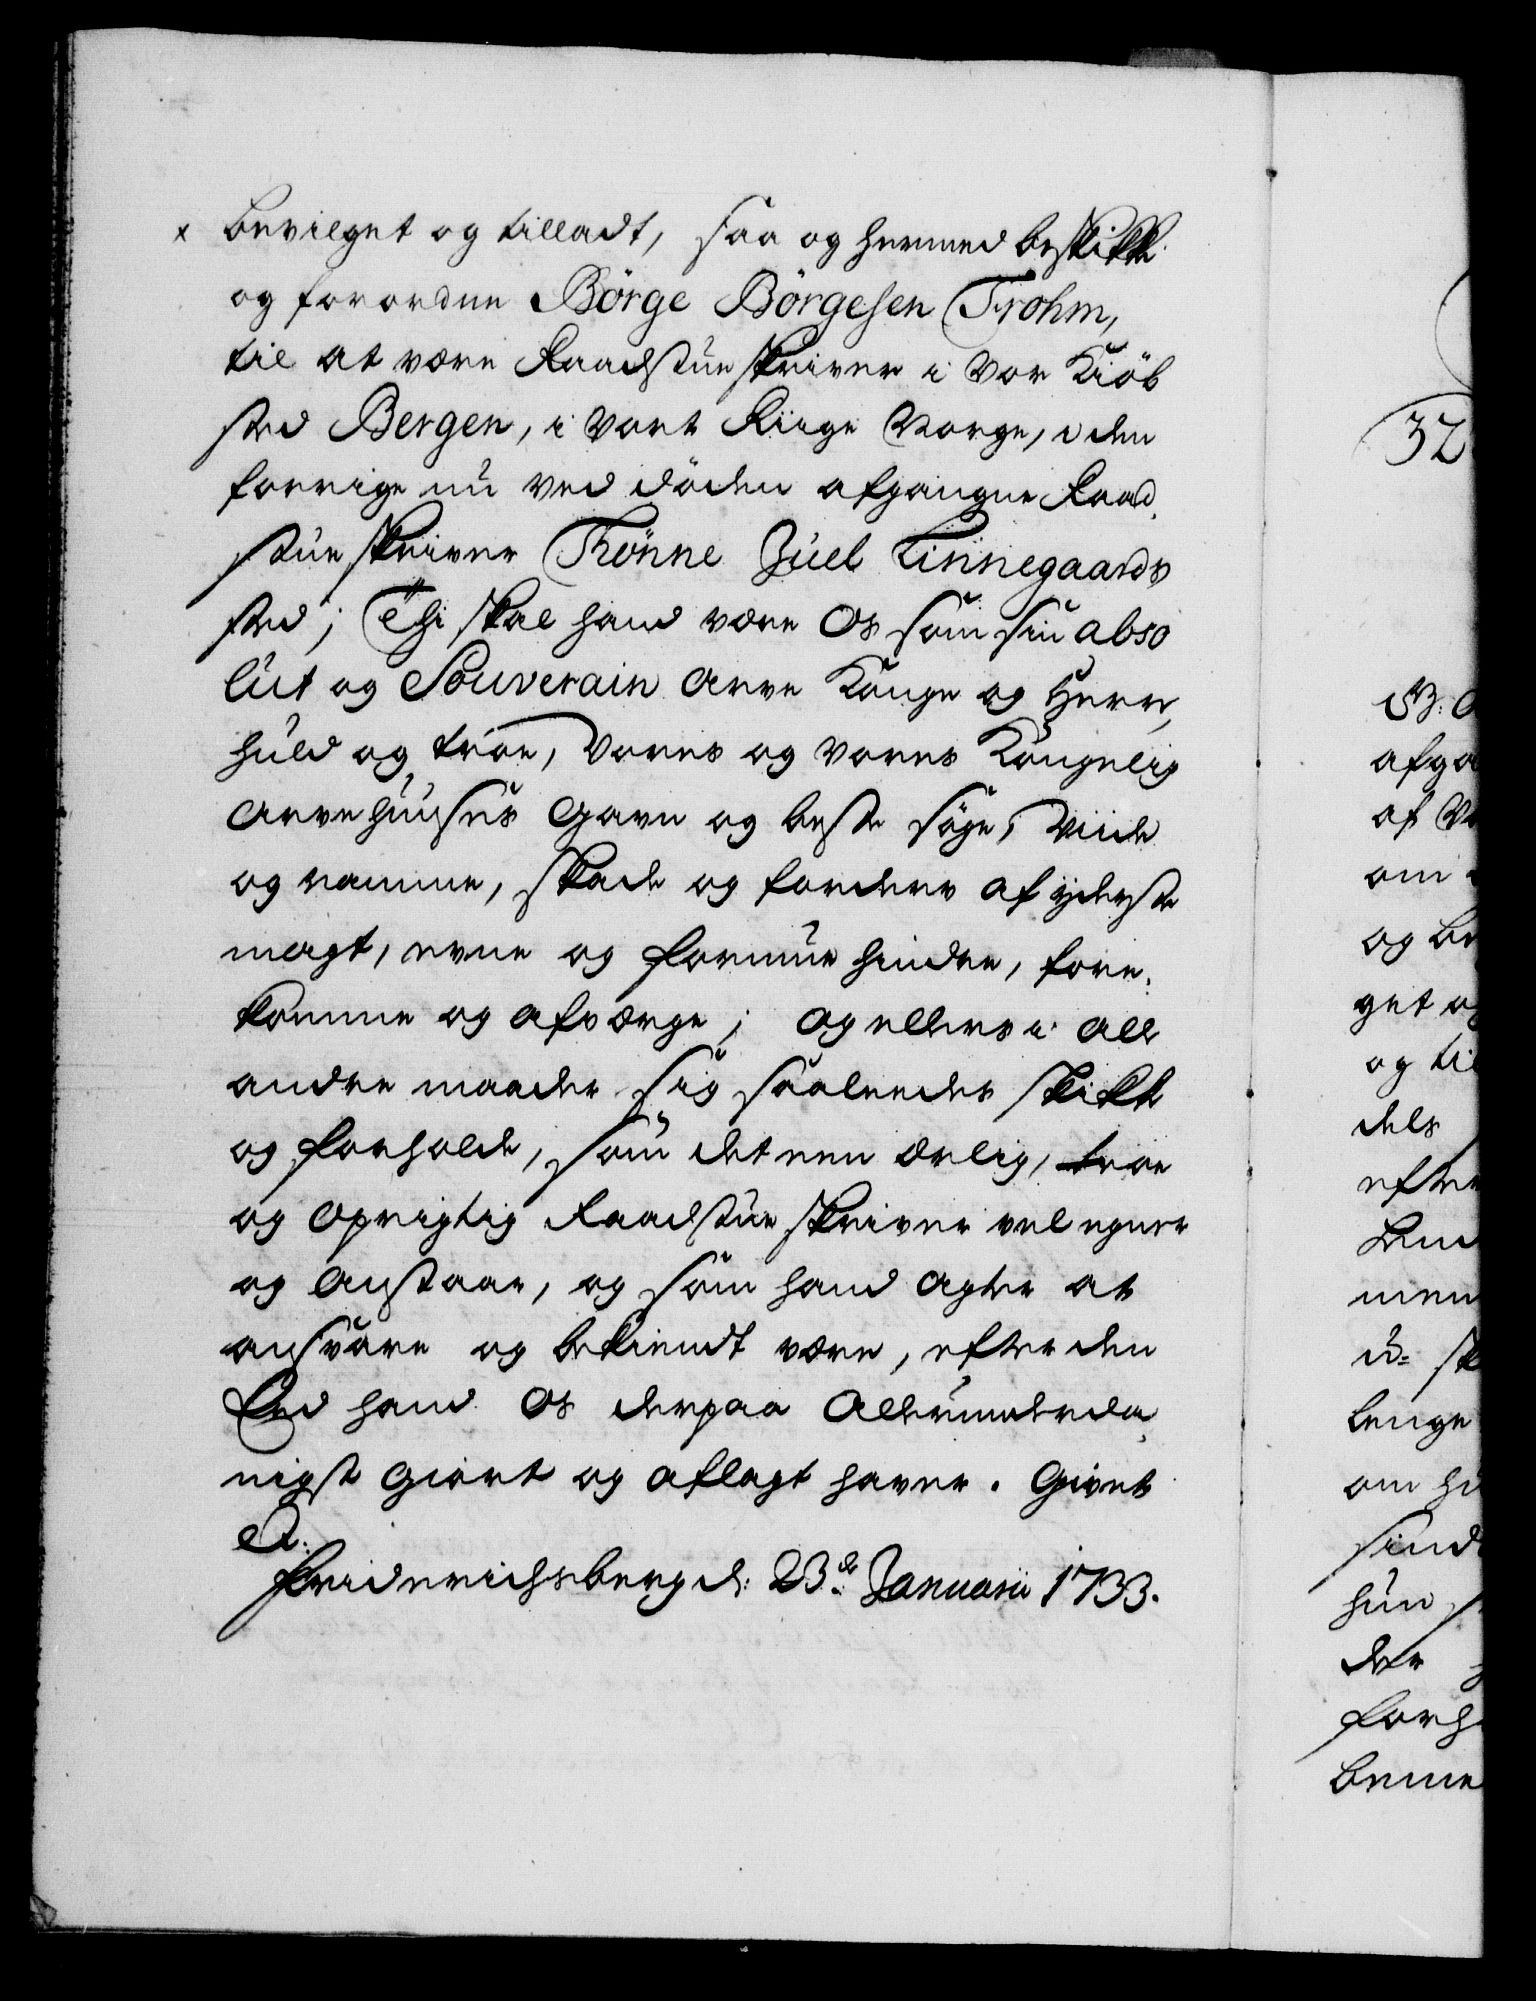 x bevilget og tilladt, saa og hermed beskikke
og forordne Börge Börgesen Trohm,
til at være Raadstue skriver i Vor Kiöb
sted Bergen, i Vort Riige Norge, i den
forrige nu ved döden afgangne Raad
stue skriver Thönne Juel Linnegaards
sted; Thi skal hand være Os som sin abso
lut og Souverain Arve Konge og Herre,
huld og troe, Vores og Vores Kongelig
Arvehuuses Gavn og beste söge, Viide
og ramme, skade og forderv af yderste
magt, evne og formue hindre, fore,
komme og afværge; og ellers i all
andre maader sig saaleedes skikke
og forholde, som det een ærlig, troe
og oprigtig Raadstue skriver vel egner
og anstaar, og som hand agter at
ansvare og bekiendt være, efter den
Eed hand Os derpaa Allerunderda
nigst giort og aflagt haver. Givet
Friderichsberg d: 23de Januarii 1733.
32
afga
af V
om
og be
get og
og til
dels
efter
men
u= sk
lenge
om hu
sind
hun
der
forh